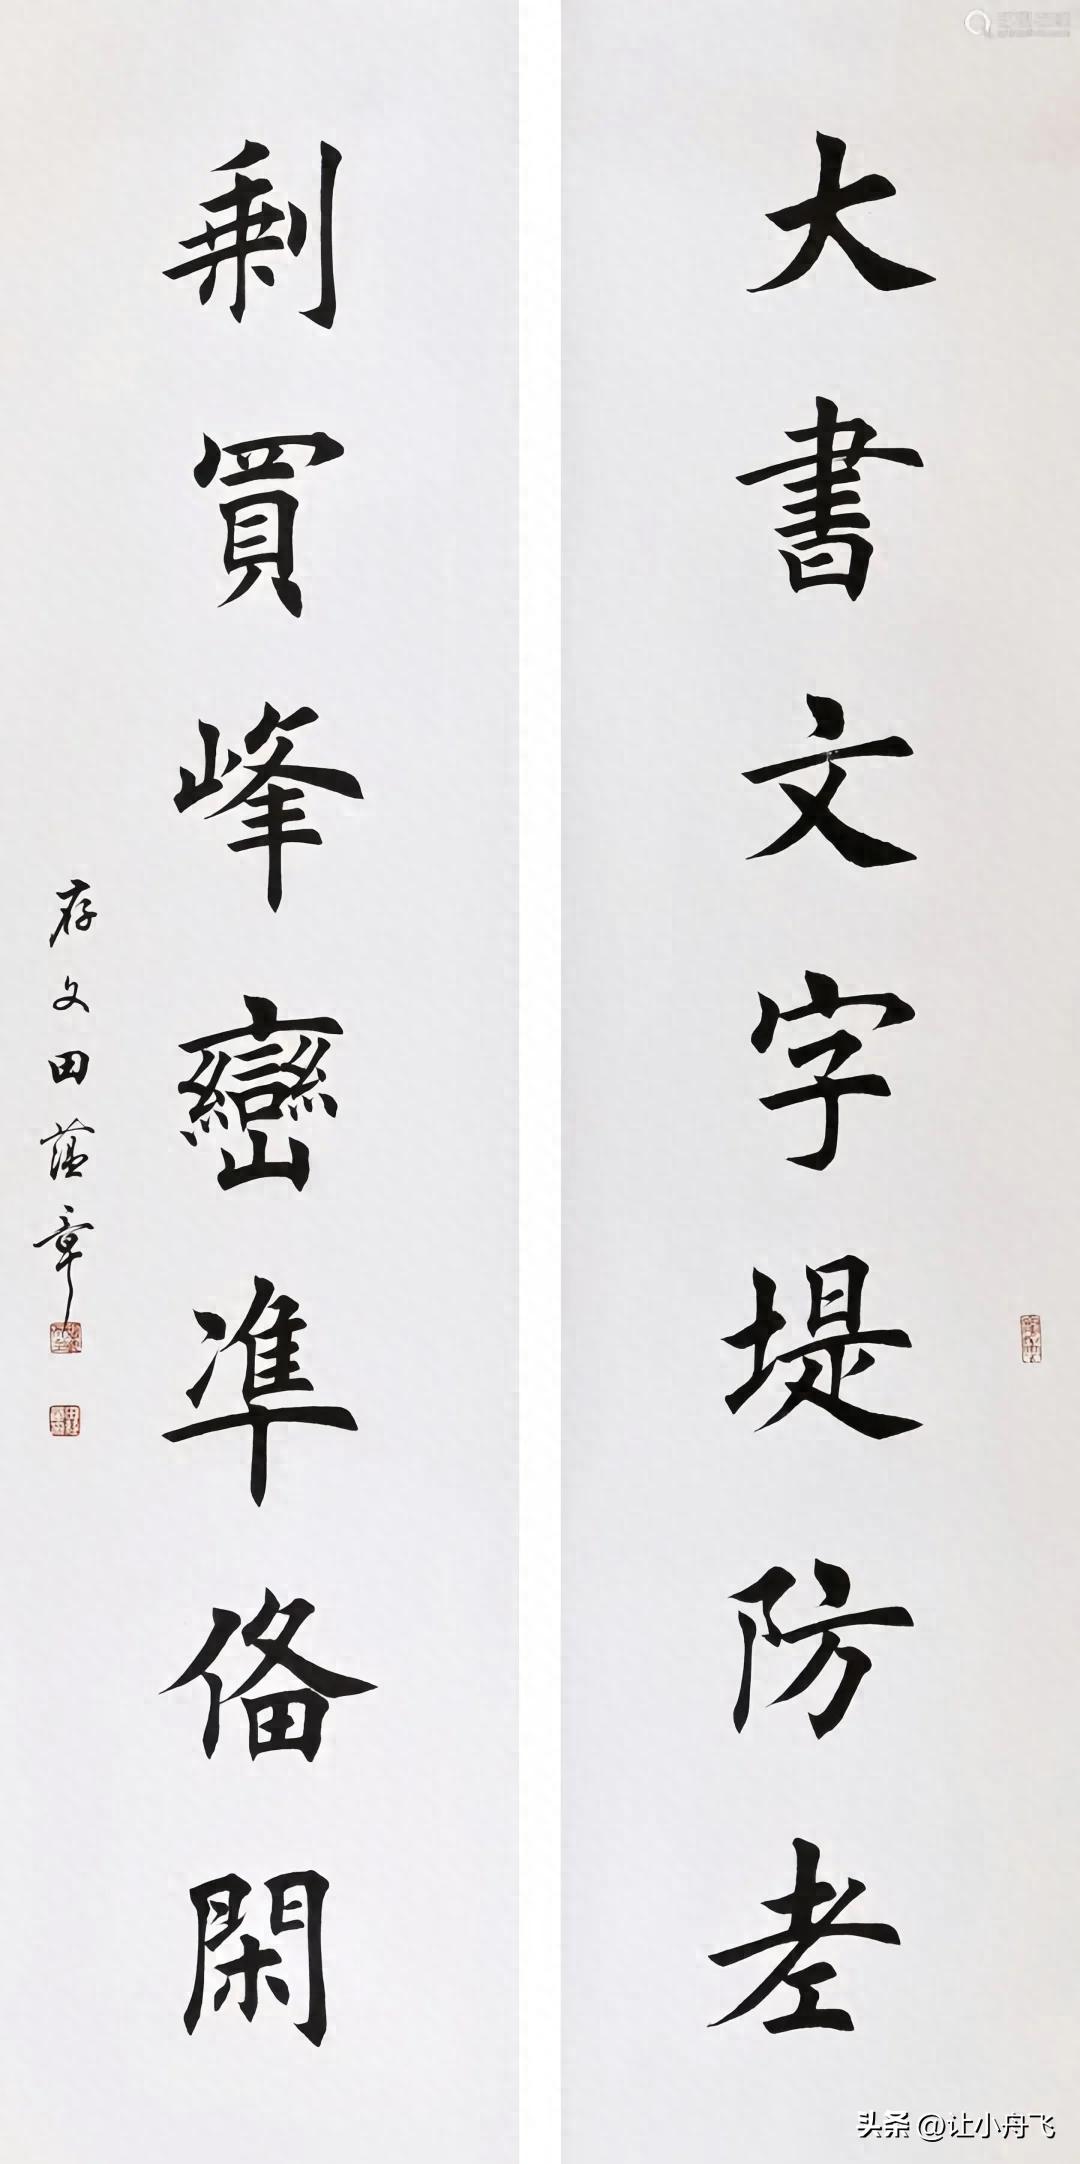 大書文字堤防老
剩買峰巒凖俻閑
存文田蕰章
头条 @让小舟飞